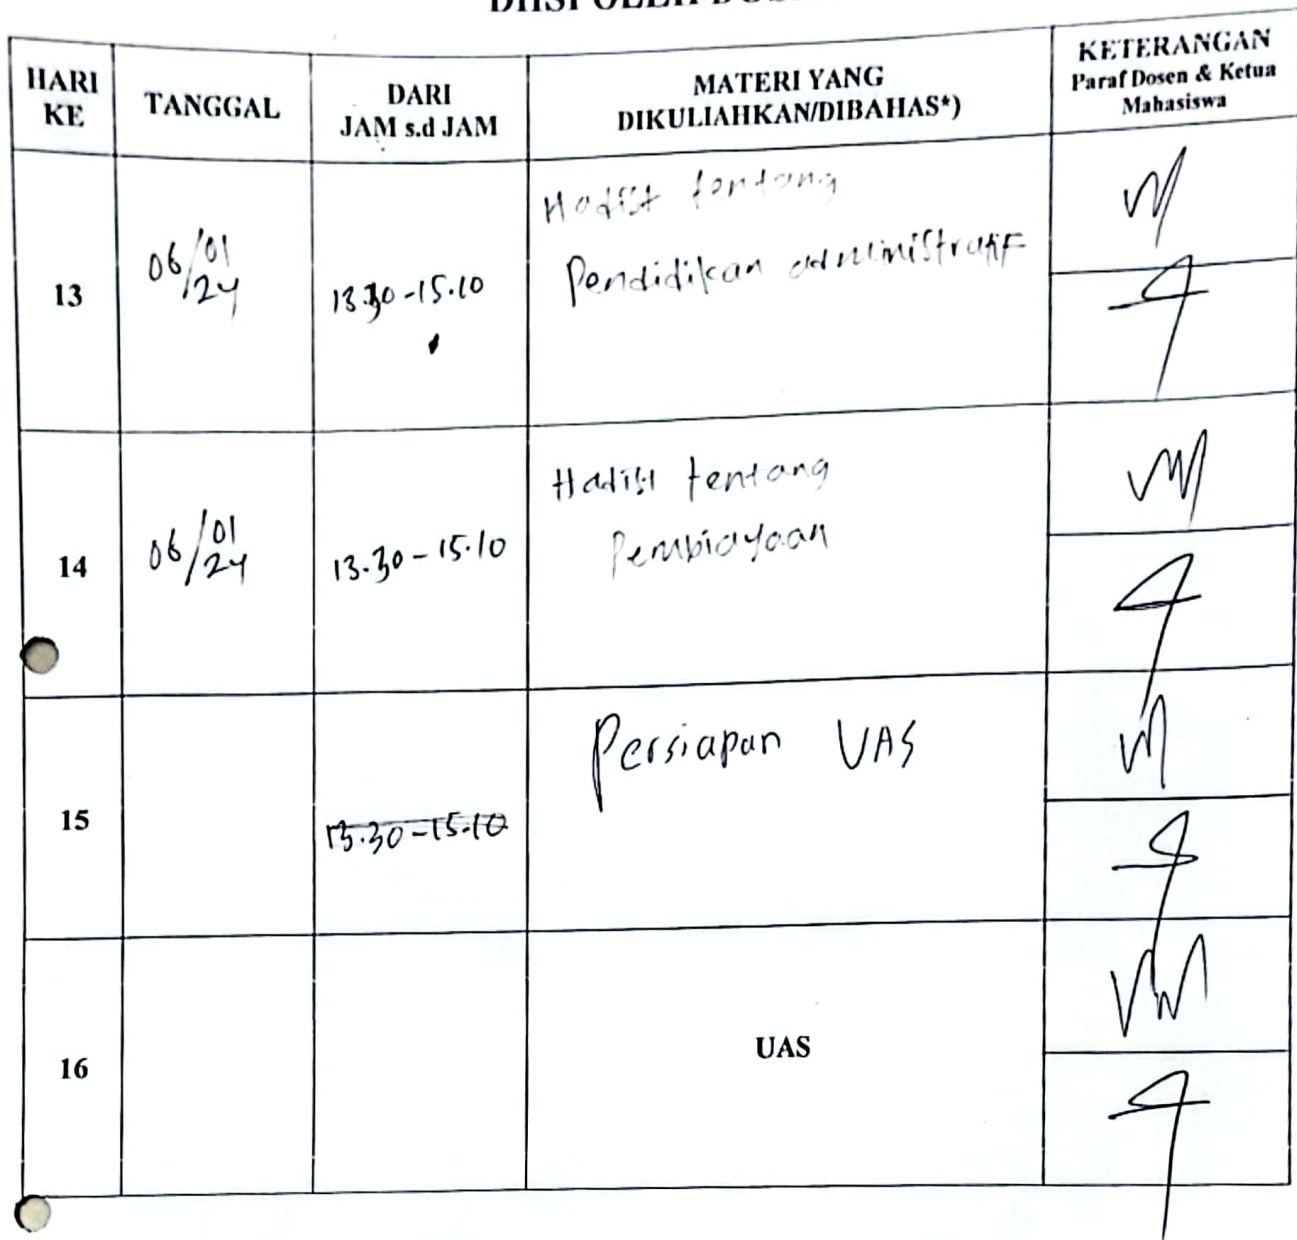 DIISI OLEH
HARI
KE
TANGGAL
DARI
JAM s.d JAM
MATERI YANG
DIKULIAHKAN/DIBAHAS*)
KETERANGAN
Paraf Dosen & Ketua
Mahasiswa
13
06/01
/24
13.30-15.10
Hadist tentang
Pendidikan administratif
14
06/01
/24
13.30-15.10
Hadist tentang
Pembiayaan
15
13.30-15.10
Persiapan UAS
16
UAS